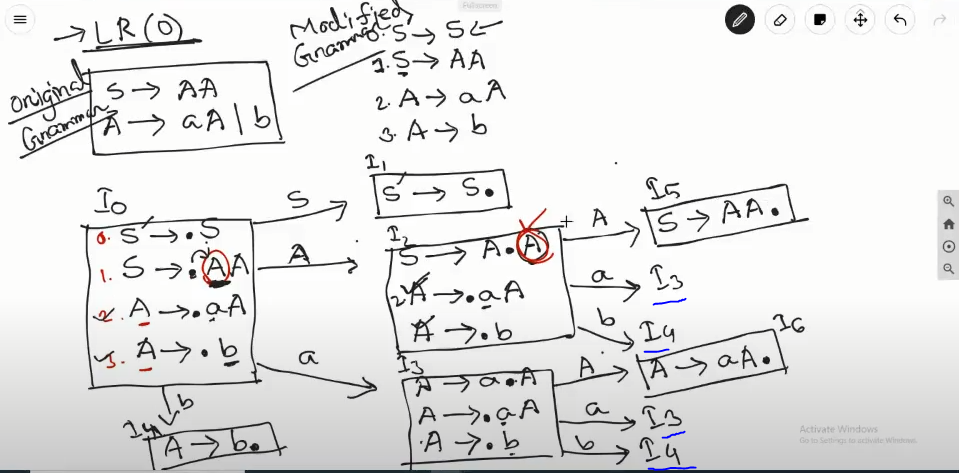 Fullscreen
→ LR(0)
Original Grammar
S → AA
A → aA | b
Modified Grammar
0. S → S
1. S → AA
2. A → aA
3. A → b
I0
0. S' → .S
1. S → .AA
2. A → .aA
3. A → .b
S
A
a
b
I1
S' → S.
I2
S → A.A
2 A → .aA
A → .b
A
a
I3
b
I4
I5
S → AA.
I3
A → a.A
A → .aA
A → .b
A
a
I3
b
I4
I6
A → aA.
I4
A → b.
Activate Windows
Go to Settings to activate Windows.